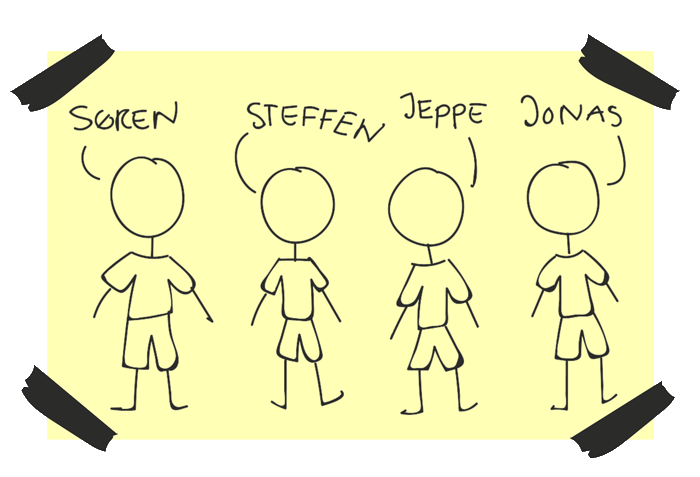 SØREN STEFFEN JEPPE JONAS